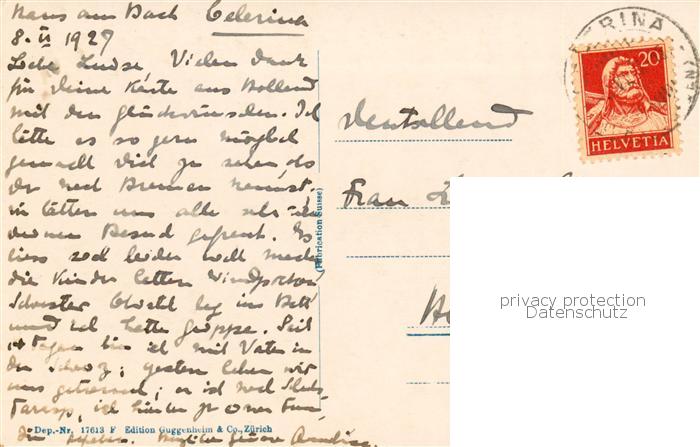 Haus am Bach Celerina
8. II 1927
Liebe Luise, Vielen Dank
für Deine Karte aus Holland
mit den Glückwünschen. Ich
hätte es so gern möglich
gemacht Dich zu sehen, als
Du nach Bremen kamst,
wir hätten uns alle sehr über
deinen Besuch gefreut. Es
liess sich leider nicht machen
die Kinder hatten Windpocken
Schwester lag im Bett
und ich hatte Grippe. Seit
14 Tagen bin ich mit Vater in
der Schweiz; gestern haben wir
uns getrennt; er ist nach Schuls
Tarasp, ich hinter zu einer
Deutschland
Frau
HELVETIA
20
(Fabrication Suisse)
Dep.-Nr. 17613 F Edition Guggenheim & Co., Zürich
privacy protection
Datenschutz